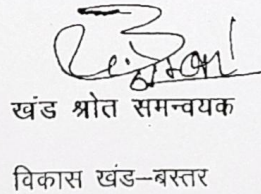 खंड श्रोत समन्वयक
विकास खंड–बस्तर